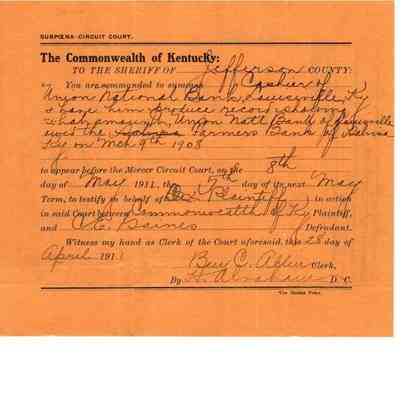 SUBPŒNA-CIRCUIT COURT.
The Commonwealth of Kentucky:
TO THE SHERIFF OF Jefferson COUNTY:
You are commanded to summon Cashier of
Union National Bank, Louisville, Ky
& have him produce record showing
what amount Union Natl Bank of Louisville
owed the Farmers Bank of
Ky on Mch 9th 1908
to appear before the Mercer Circuit Court, on the 8th
day of May 1911, the 7th day of its next May
Term, to testify in behalf of Plaintiff in action
in said Court between Commonwealth of Ky Plaintiff,
and C. E. Baines Defendant.
Witness my hand as Clerk of the Court aforesaid, this 28 day of
April 191
Ben C. Allin Clerk,
By D. C.